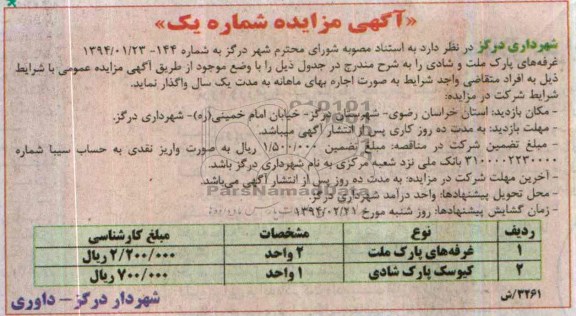 «آگهی مزایده شماره یک»
شهرداری درگز در نظر دارد به استناد مصوبه شورای محترم شهر درگز به شماره ۱۴۴- ۱۳۹۴/۰۱/۲۳
غرفه‌های پارک ملت و شادی را به شرح مندرج در جدول ذیل را با وضع موجود از طریق آگهی مزایده عمومی با شرایط
ذیل به افراد متقاضی واجد شرایط به صورت اجاره بهای ماهانه به مدت یک سال واگذار نماید.
شرایط شرکت در مزایده:
- مکان بازدید: استان خراسان رضوی- شهرستان درگز- خیابان امام خمینی(ره)- شهرداری درگز.
- مهلت بازدید: به مدت ده روز کاری پس از انتشار آگهی میباشد.
- مبلغ تضمین شرکت در مناقصه: مبلغ تضمین ۱/۵۰۰/۰۰۰ ریال به صورت واریز نقدی به حساب سیبا شماره
۳۱۰۰۰۰۲۲۳۰۰۰۰ بانک ملی نزد شعبه مرکزی به نام شهرداری درگز باشد.
- آخرین مهلت شرکت در مزایده: به مدت ده روز پس از انتشار آگهی می‌باشد.
- محل تحویل پیشنهادها: واحد درآمد شهرداری درگز.
- زمان گشایش پیشنهادها: روز شنبه مورخ ۱۳۹۴/۰۲/۲۱
ردیف نوع مشخصات مبلغ کارشناسی
۱ غرفه‌های پارک ملت ۲ واحد ۲/۲۰۰/۰۰۰ ریال
۲ کیوسک پارک شادی ۱ واحد ۷۰۰/۰۰۰ ریال
شهردار درگز- داوری
۳۴۶۱/ش
ParsNamadData